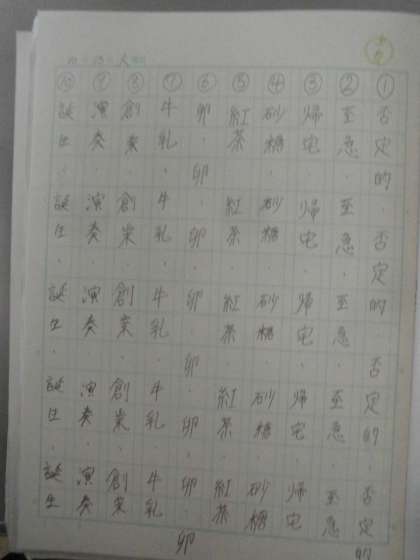 ①否定的・否定的・否定的・否定的
②至急・至急・至急・至急・至急
③帰宅・帰宅・帰宅・帰宅・帰宅
④砂糖・砂糖・砂糖・砂糖・砂糖
⑤紅茶・紅茶・紅茶・紅茶・紅茶
⑥卵・卵・卵・卵・卵・卵・卵・卵
⑦牛乳・牛乳・牛乳・牛乳・牛乳
⑧創業・創業・創業・創業・創業
⑨演奏・演奏・演奏・演奏・演奏
⑩誕生・誕生・誕生・誕生・誕生